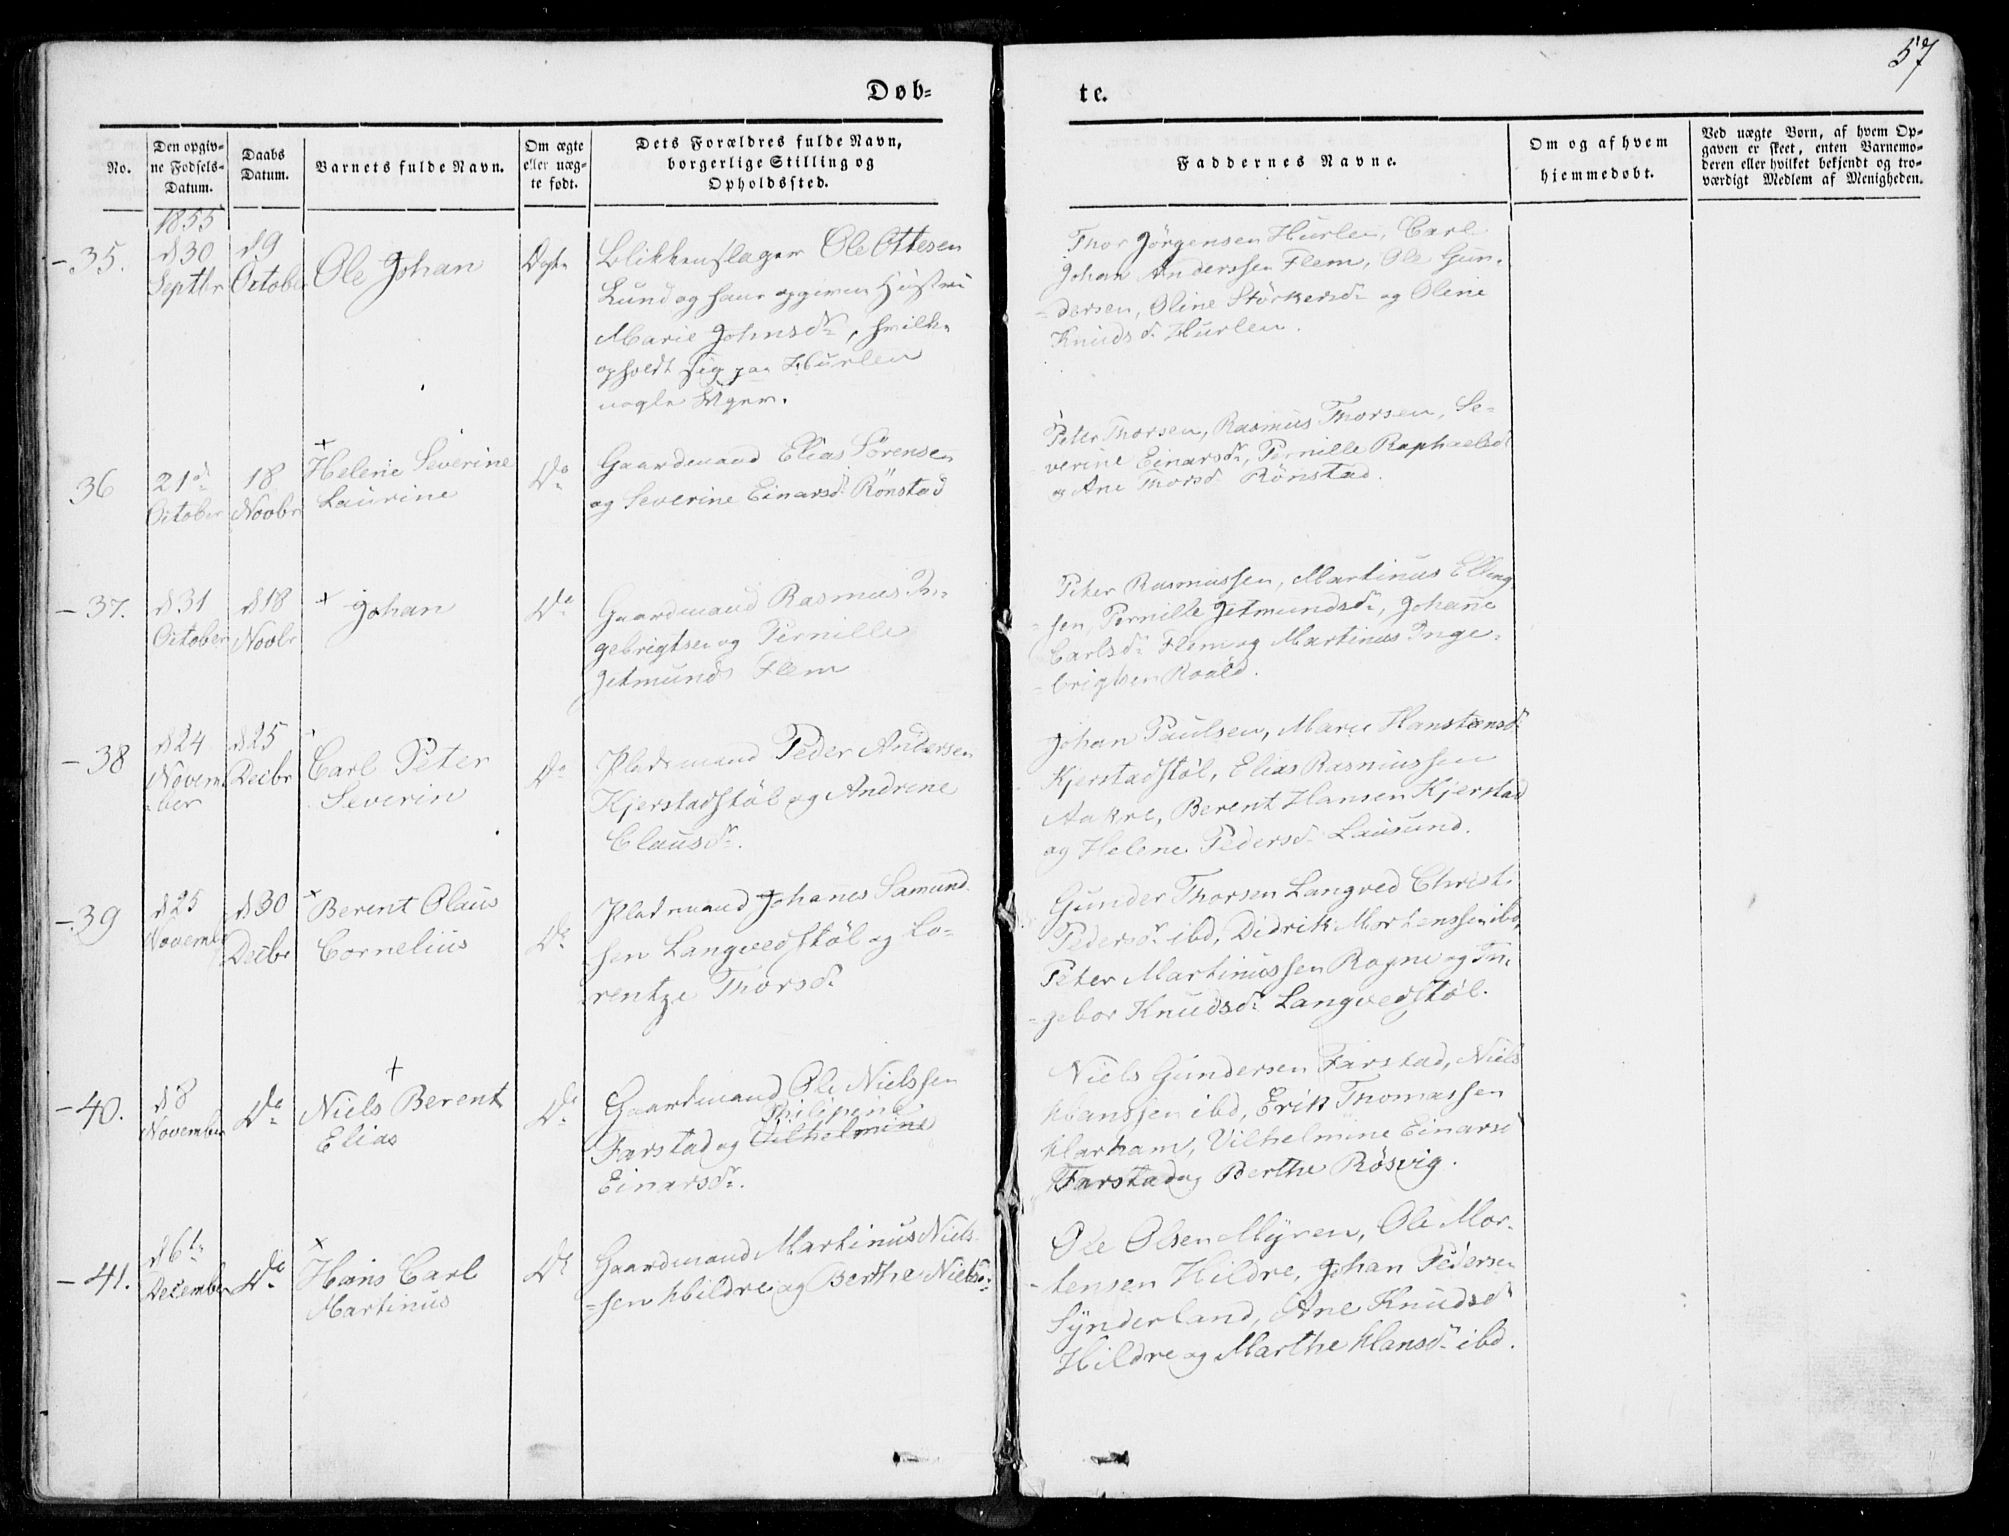 57
Døb=
te.
No.
Den opgiv-
ne Fødsels-
Datum.
Daabs
Datum.
Barnets fulde Navn.
Om ægte
eller uæg-
te født.
Dets Forældres fulde Navn,
borgerlige Stilling og
Opholdssted.
Faddernes Navne.
Om og af hvem
hjemmedøbt.
Ved uægte Børn, af hvem Op-
gaven er skeet, enten Barnemo-
deren eller hvilket bekjendt og tro-
værdigt Medlem af Menigheden.
1855
-35.
d 30
Septbr
d 9
October
Ole Johan
Ægte
Blikkenslager Ole Ottesen
Lund og hans opgivne Hustru
Marie Johnsdr, hvilke
opholdt sig paa Hurlen
nogle Uger.
Thor Jörgensen Hurlen, Carl
Johan Anderssen Flem, Ole Gun-
dersen, Oline Störkersdr og Oline
Knudsdr Hurlen.
36
21d
October
18
Novbr
+
Helene Severine
Laurine
Do
Gaardmand Elias Sörensen
og Severine Einarsdr Rönstad
Peter Thorsen, Rasmus Thorsen, Se-
verine Einarsdr, Pernille Raphaelsdr
og Ane Thorsdr Rönstad.
-37.
d 31
October
d 18
Novbr
+
Johan
Do
Gaardmand Rasmus In-
gebrigtsen og Pernille
Jetmunds Flem
Peter Rasmussen, Martinus Elling-
sen, Pernille Jetmundsdr, Johane
Carlsdr Flem og Martinus Inge-
-brigtsen Roald.
-38
d 24
Novem
-ber
d 25
Decbr
Carl Peter
Severin
Do
Pladsmand Peder Andersen
Kjerstadstöl og Andrine
Clausdr.
Johan Paulsen, Marie Hanstensdr
Kjerstadstöl, Elias Rasmussen
Aakre, Berent Hansen Kjerstad
og Helene Pedersdr Lausund.
-39
d 25
November
d 30
Decbr
+
Berent Olaus
Cornelius
Do
Pladsmand Johanes Samund-
sen Langvedstöl og Lo-
rentze Thorsdr
Gunder Thorsen Langved Christi
Pedersdr ibd, Didrik Mortenssen ibd,
Peter Martinussen Rogne og In-
-gebor Knudsdr Langvedstöl.
-40.
d 8
November
Do
+
Niels Berent
Elias
Do
Gaardmand Ole Nielssen
Philipine
Farstad og Vilhelmine
Einarsdr.
Niels Gundersen Farstad, Niels
Hanssen ibd, Erik Thomassen
Harham, Vilhelmine Einarsd
Farstad og Berthe Rösvig.
-41.
d 6te
December
Do
+
Hans Carl
Martinus
Do
Gaardmand Martinus Niels-
-sen Hildre og Berthe Nielsd.
Ole Olsen Myren, Ole Mor-
-tensen Hildre, Johan Pedersen
Synderland, Ane Knudsdr
Hildre og Marthe Hansdr ibd.